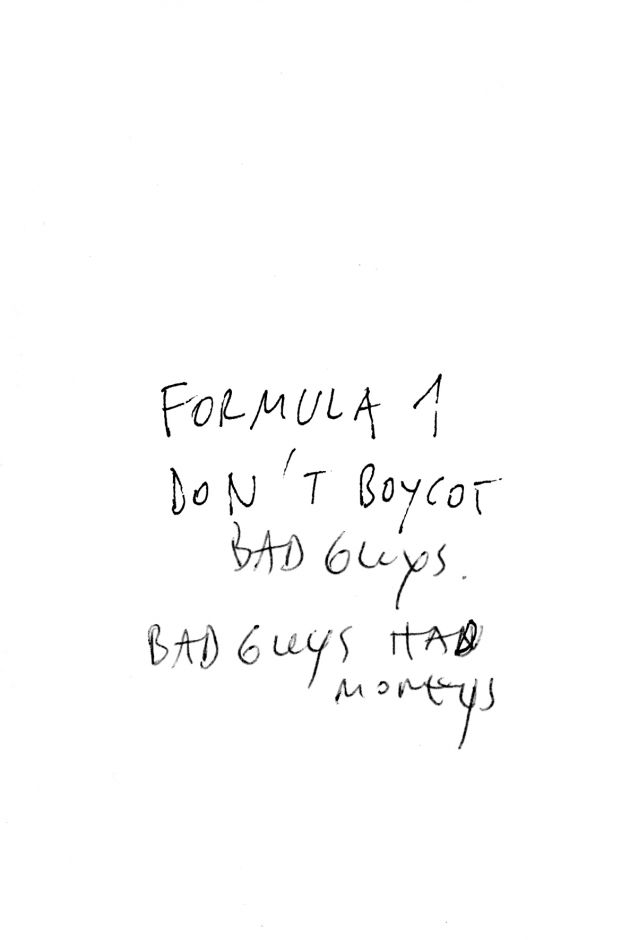 FORMULA 1
DON'T BOYCOT
BAD GUYS.
BAD GUYS HAD
MONEYS